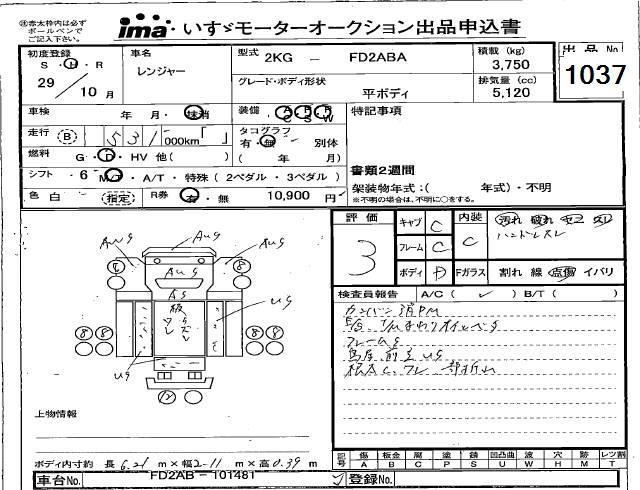 ㊟赤太枠内は必ず
ボールペンで
ご記入下さい。
ima いすゞモーターオークション出品申込書
初度登録
S・H・R
29／10月
車名
レンジャー
型式 2KG － FD2ABA
グレード・ボディ形状
平ボディ
積載 (kg)
3,750
排気量 (cc)
5,120
出品 No
1037
車検 年 月・抹消
装備 A/C P/S P/W
特記事項
走行 (B) 531 000km「 」
タコグラフ
有・無 別体
( 年 月)
燃料 G・D・HV 他( )
書類2週間
シフト 6 M/T・A/T・特殊(2ペダル・3ペダル)
架装物年式:( 年式)・不明
※不明の場合は、不明に○をする。
色 白 (指定) R券 有・無 10,900 円
評価
3
キャブ C
フレーム C
ボディ D
内装 C
Fガラス
汚れ 破れ コゲ スレ
ハンドルスレ
割れ 線 点傷 イバリ
検査員報告 A/C( ✓ ) B/T( )
フレームS
AUG
AUG
AUG
AUG
AS
UG
UG
8 8 8 8
12
上物情報
ボディ内寸約 長 6.21 m×幅 2.11 m×高 0.39 m
記号 傷A 板金B 腐C 塗P 錆S 凹凸曲U 波W 穴H 跡M レツ割T
車台No. FD2AB－101481
登録No.